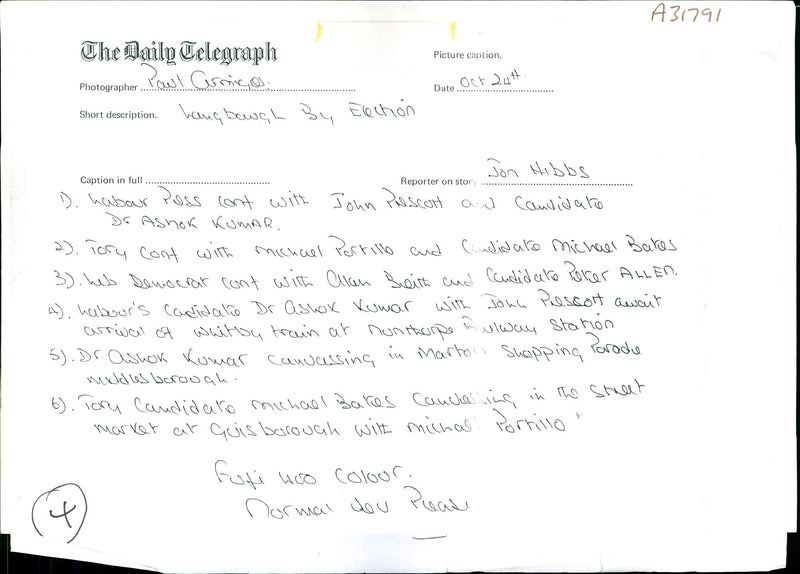 A31791
The Daily Telegraph
Picture caption.
Photographer Paul Armiger.
Date Oct 24th
Short description. Langbaurgh By Election
Caption in full
Reporter on story Jon Hibbs
1). Labour Press conf with John Prescott and Candidate
Dr ASHOK KUMAR.
2). Tory Conf with Michael Portillo and Candidate Michael Bates
3). Lib Democrat conf with Alan Beith and Candidate Peter ALLEN.
4). Labour's Candidate Dr Ashok Kumar with John Prescott await
arrival of Whitby train at Nunthorpe Railway Station
5). Dr Ashok Kumar canvassing in Marton Shopping Parade
Middlesborough.
6). Tory Candidate Michael Bates Canvassing in the street
market at Guisborough with Michael Portillo
Fuji 400 Colour.
Normal dev Please
4